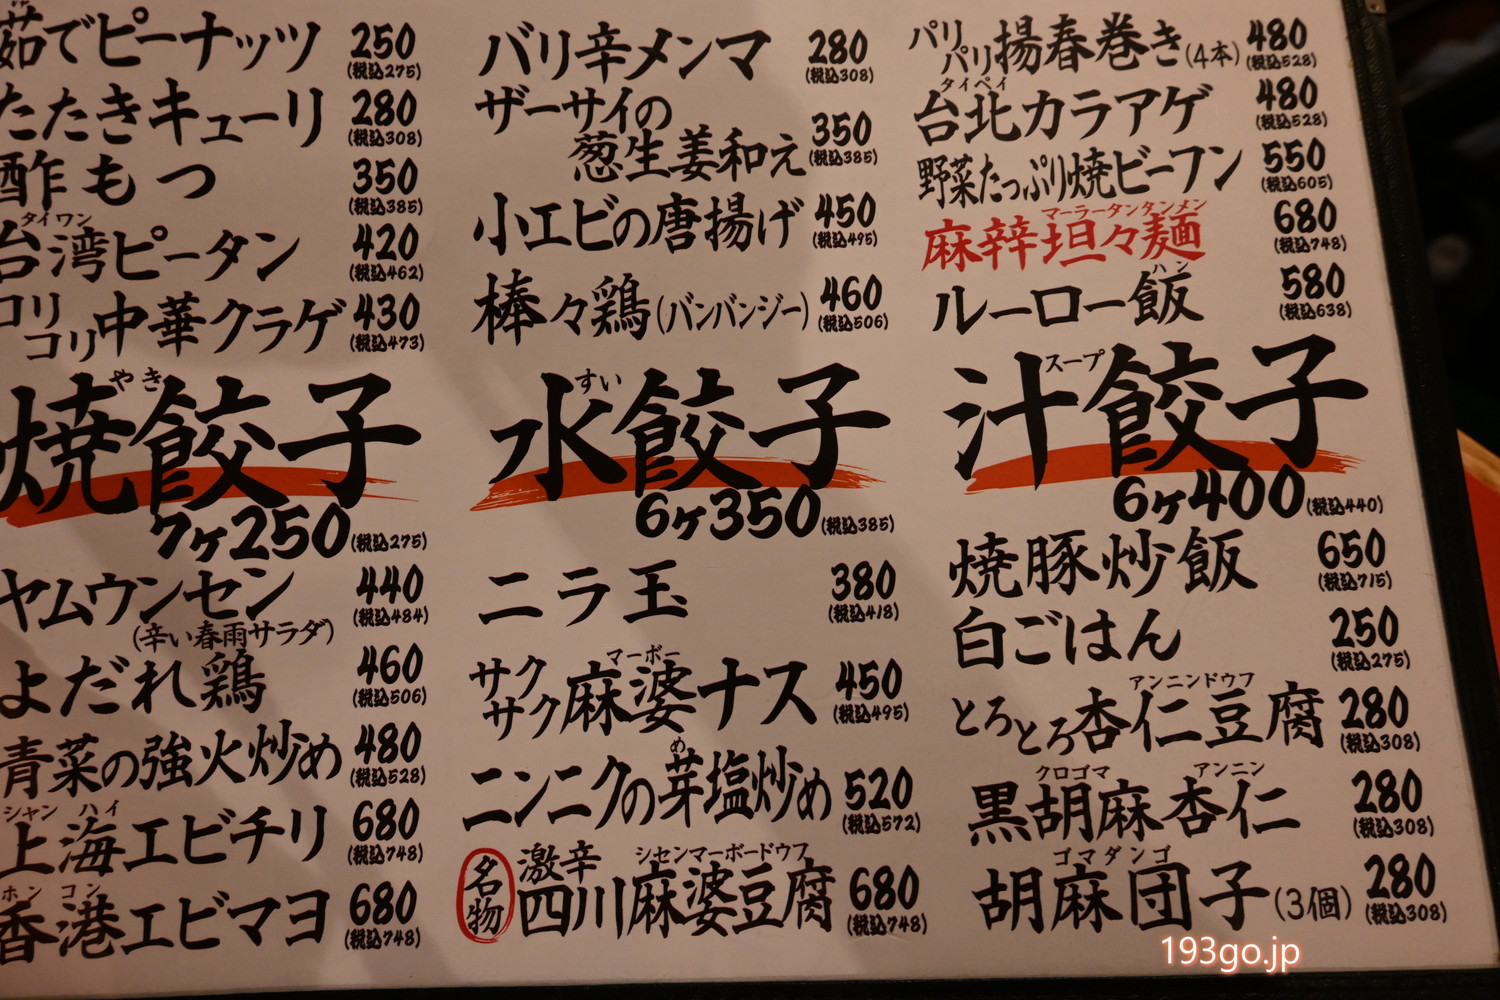 茹でピーナッツ 250 (税込275)
たたきキューリ 280 (税込308)
酢もつ 350 (税込385)
タイワン
台湾ピータン 420 (税込462)
コリコリ中華クラゲ 430 (税込473)
やき
焼餃子
7ヶ250 (税込275)
ヤムウンセン 440 (税込484)
(辛い春雨サラダ)
よだれ鶏 460 (税込506)
青菜の強火炒め 480 (税込528)
シャン ハイ
上海エビチリ 680 (税込748)
ホン コン
香港エビマヨ 680 (税込748)
バリ辛メンマ 280 (税込308)
ザーサイの
葱生姜和え 350 (税込385)
小エビの唐揚げ 450 (税込495)
棒々鶏(バンバンジー) 460 (税込506)
すい
水餃子
6ヶ350 (税込385)
ニラ玉 380 (税込418)
マーボー
サクサク麻婆ナス 450 (税込495)
め
ニンニクの芽塩炒め 520 (税込572)
シセンマーボードウフ
名物 激辛 四川麻婆豆腐 680 (税込748)
パリパリ揚春巻き(4本) 480 (税込528)
タイペイ
台北カラアゲ 480 (税込528)
野菜たっぷり焼ビーフン 550 (税込605)
マーラータンタンメン
麻辛坦々麺 680 (税込748)
ハン
ルーロー飯 580 (税込638)
スープ
汁餃子
6ヶ400 (税込440)
焼豚炒飯 650 (税込715)
白ごはん 250 (税込275)
アンニンドウフ
とろとろ杏仁豆腐 280 (税込308)
クロゴマ アンニン
黒胡麻杏仁 280 (税込308)
ゴマダンゴ
胡麻団子(3個) 280 (税込308)
193go.jp